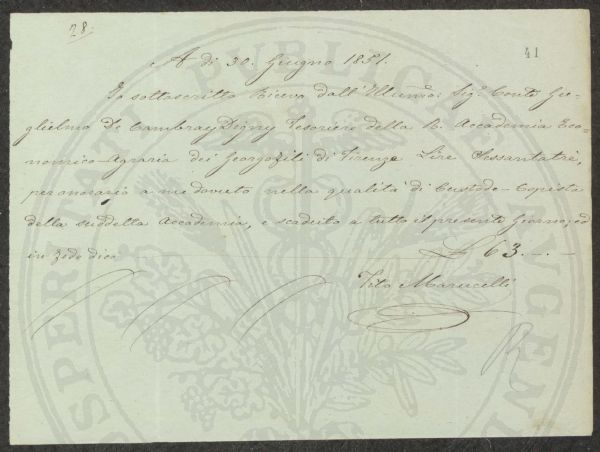 28.
41
A di 30. Giugno 1851.
Io sottoscritto ricevo dall'Illumo: Sigr. Conte Gu-
glielmo De Cambray Digny Tesoriere della R. Accademia Eco-
nomico-Agraria dei Georgofili di Firenze Lire Sessantatrè,
per onorario a me dovuto nella qualità di Custode-Copista
della suddetta Accademia, e scaduto a tutto il presente Giorno, ed
in fede dico £ 63.-.-
Vito Marucelli
R
PROSPERITATI PUBLICAE AUGENDAE